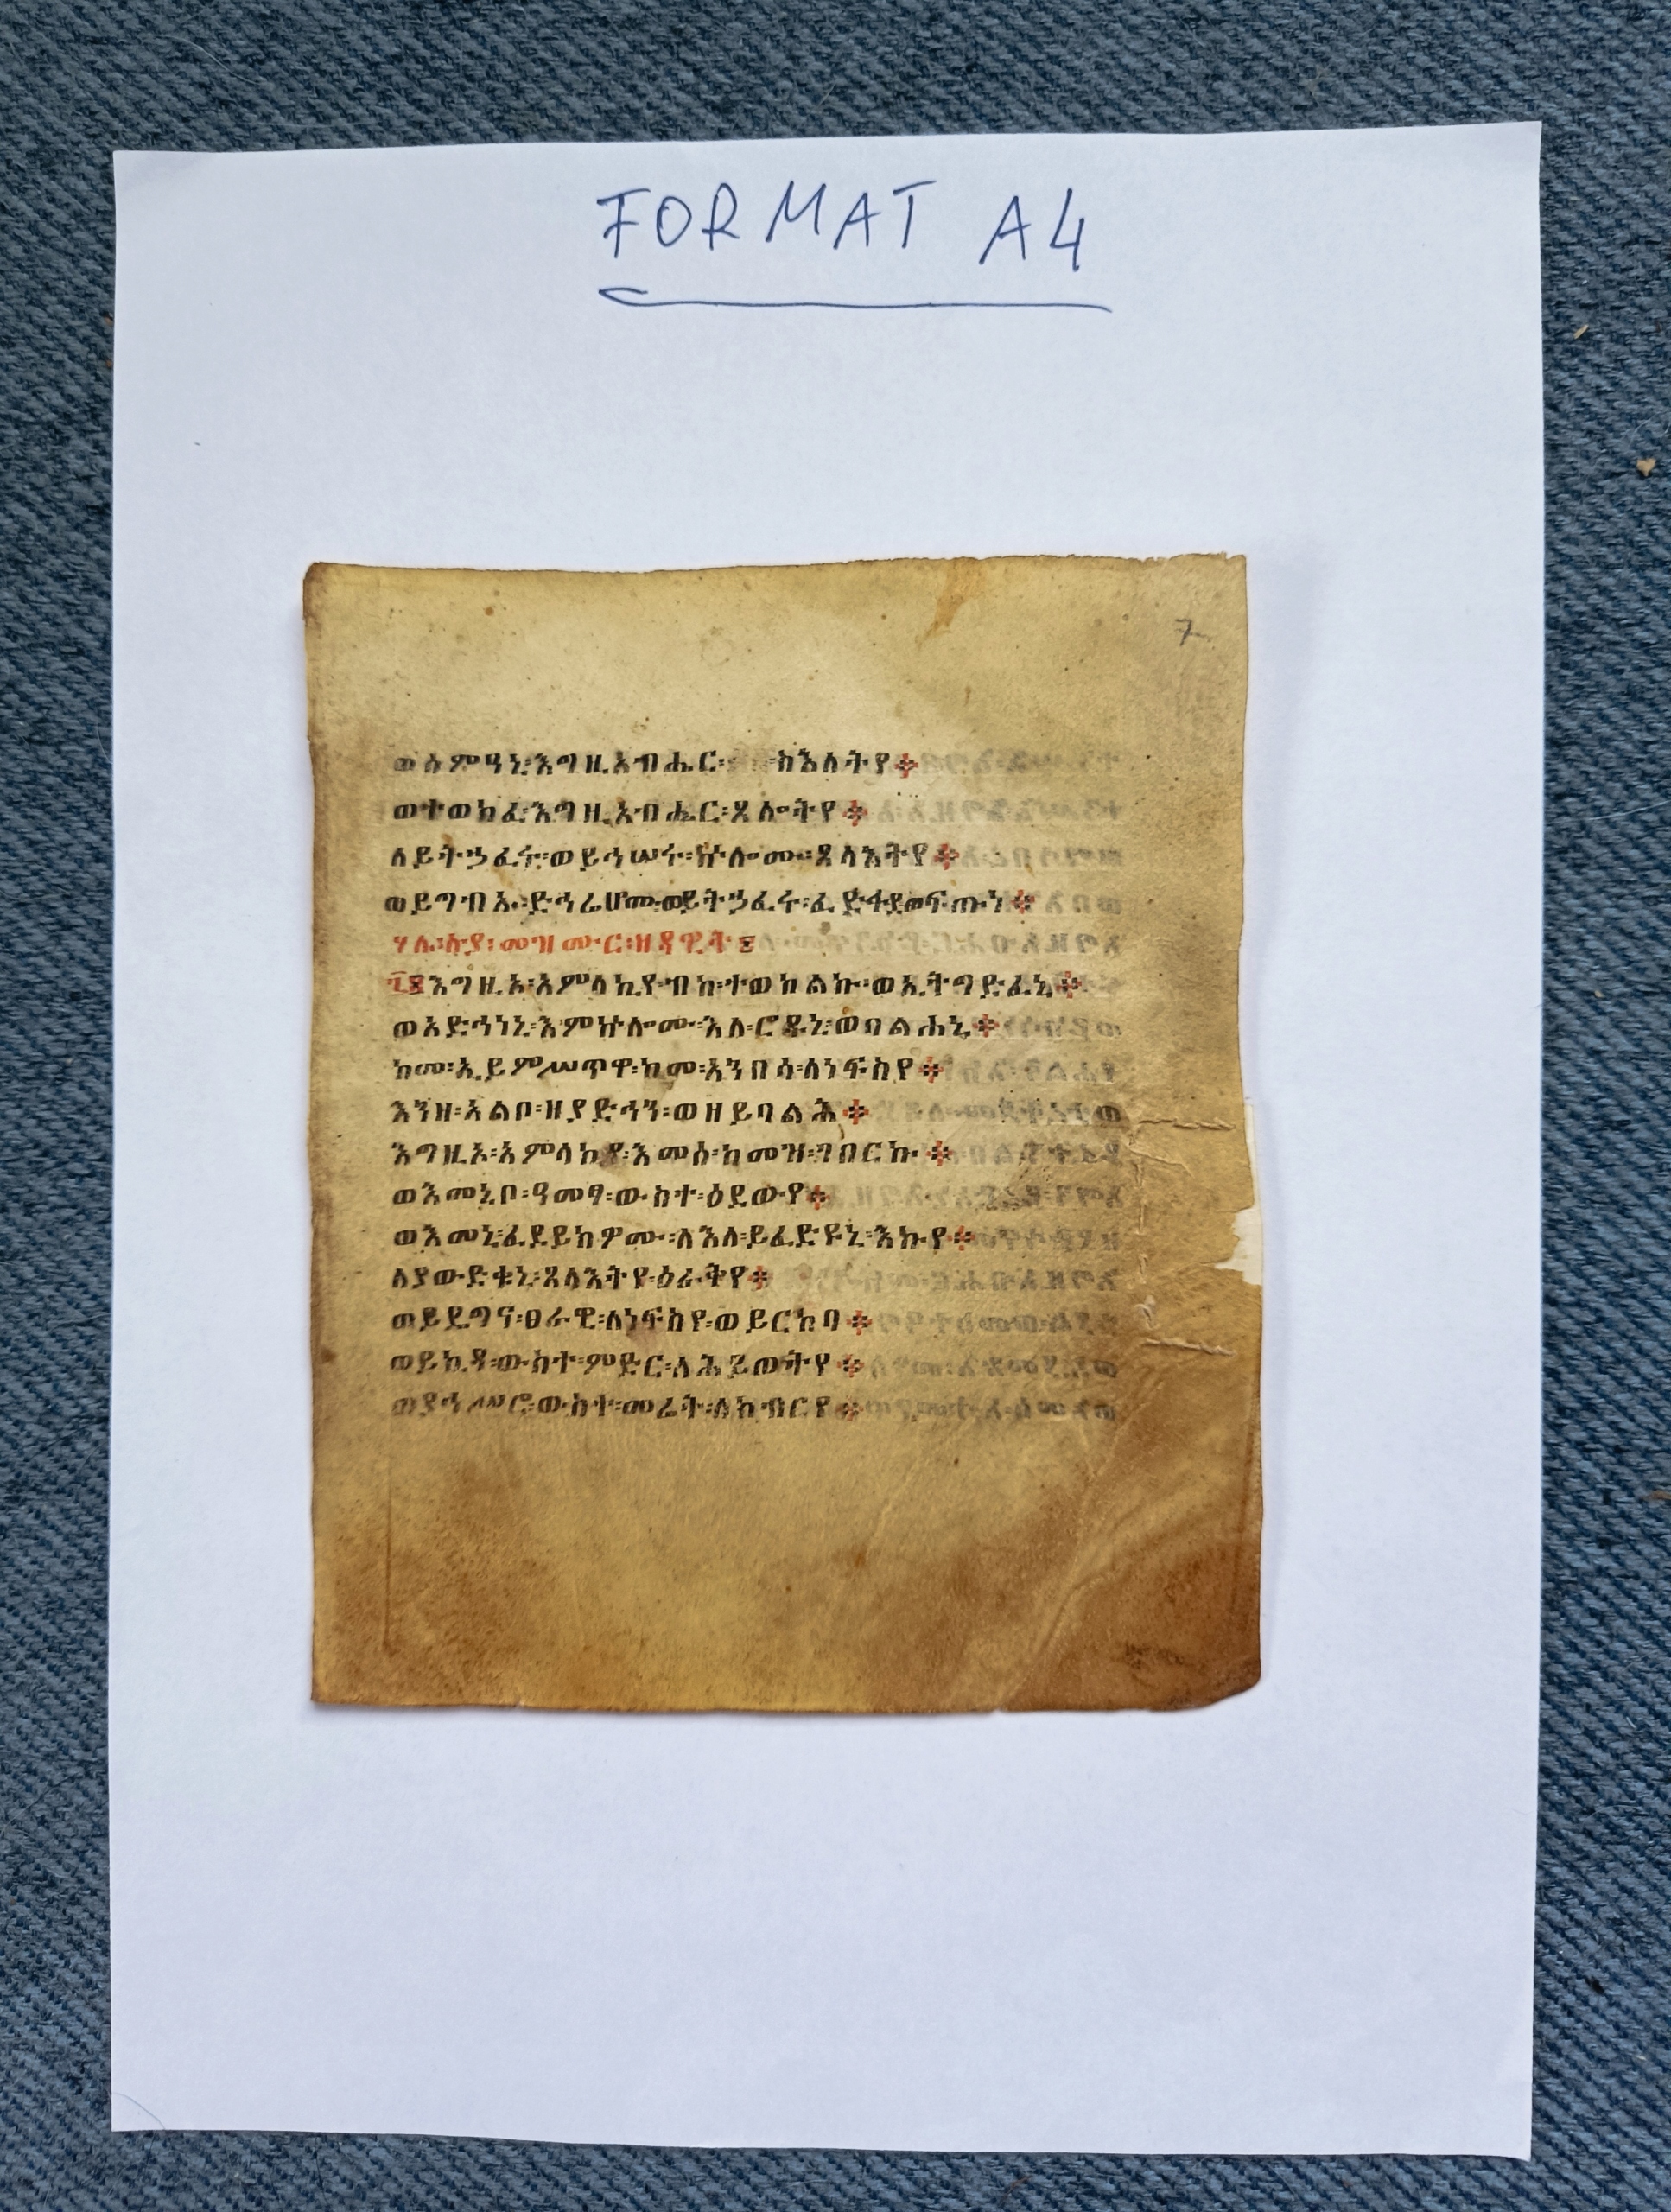 FORMAT A4
7
ወሰምዓኒ፡እግዚአብሔር፡ ስእለትየ፨
ወተወክፈ፡እግዚአብሔር፡ጸሎትየ፨
ለይትኃፈሩ፡ወይኅሡሩ፡ኵሎሙ፡ጸላእትየ፨
ወይግብኡ፡ድኅሬሆሙ፡ወይትኃፈሩ፡ፈድፋደ፡ወፍጡነ፨
ሃሌ፡ሉያ፡መዝሙር፡ዘዳዊት፤
፯እግዚኦ፡አምላኪየ፡ብከ፡ተወከልኩ፡ወኢትግድፈኒ፨
ወአድኅነኒ፡እምኵሎሙ፡እለ፡ሮዱኒ፡ወባልሐኒ፨
ከመ፡ኢይምሥጥዋ፡ከመ፡አንበሳ፡ለነፍስየ፨
እንዘ፡አልቦ፡ዘያድኅን፡ወዘይባልሕ፨
እግዚኦ፡አምላኪየ፡እመሰ፡ከመዝ፡ገበርኩ፨
ወእመኒቦ፡ዓመፃ፡ውስተ፡ዕደውየ፨
ወእመኒ፡ፈደይክዎሙ፡ለእለ፡ይፈድዩኒ፡እኩየ፨
ለያውድቁኒ፡ጸላእትየ፡ዕራቅየ፨
ወይዴግና፡ፀራዊ፡ለነፍስየ፡ወይርከባ፨
ወይኪዳ፡ውስተ፡ምድር፡ለሕይወትየ፨
ወያኅሥሮ፡ውስተ፡መሬት፡ለክብርየ፨